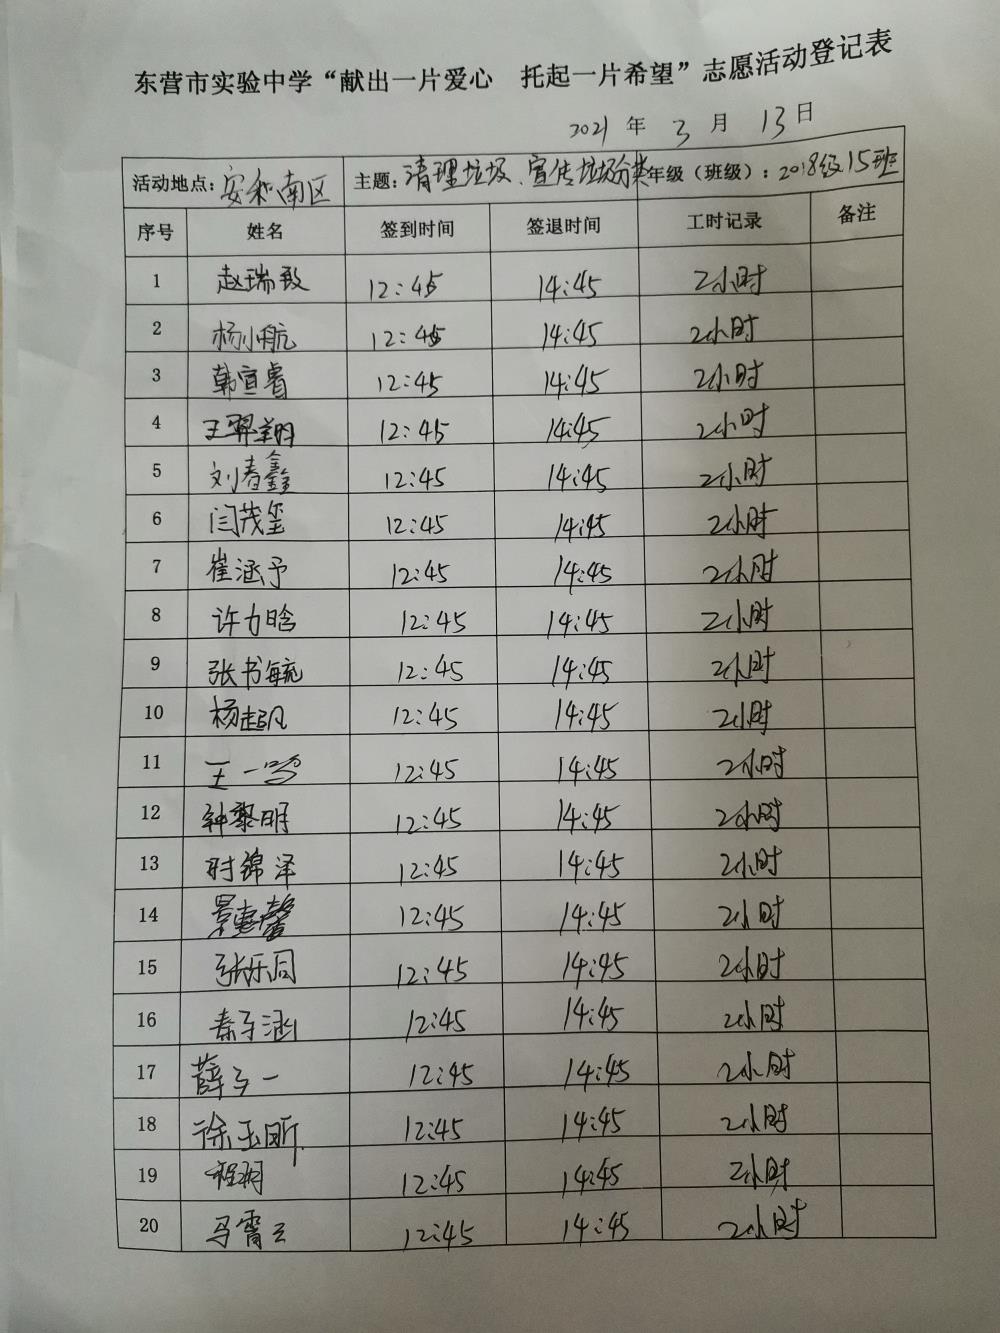 东营市实验中学“献出一片爱心 托起一片希望”志愿活动登记表
2021 年 3 月 13 日
活动地点：安和南区 主题：清理垃圾、宣传垃圾分类 年级（班级）：2018级15班
序号 姓名 签到时间 签退时间 工时记录 备注
1 赵瑞致 12:45 14:45 2小时
2 杨小航 12:45 14:45 2小时
3 韩宣睿 12:45 14:45 2小时
4 王翆翔 12:45 14:45 2小时
5 刘春鑫 12:45 14:45 2小时
6 闫茂玺 12:45 14:45 2小时
7 崔涵予 12:45 14:45 2小时
8 许力晗 12:45 14:45 2小时
9 张书毓 12:45 14:45 2小时
10 杨起凡 12:45 14:45 2小时
11 王一鸣 12:45 14:45 2小时
12 钟黎明 12:45 14:45 2小时
13 时锦泽 12:45 14:45 2小时
14 景惠馨 12:45 14:45 2小时
15 张乐同 12:45 14:45 2小时
16 秦子涵 12:45 14:45 2小时
17 薛子一 12:45 14:45 2小时
18 徐玉昕 12:45 14:45 2小时
19 程翊 12:45 14:45 2小时
20 马霄云 12:45 14:45 2小时